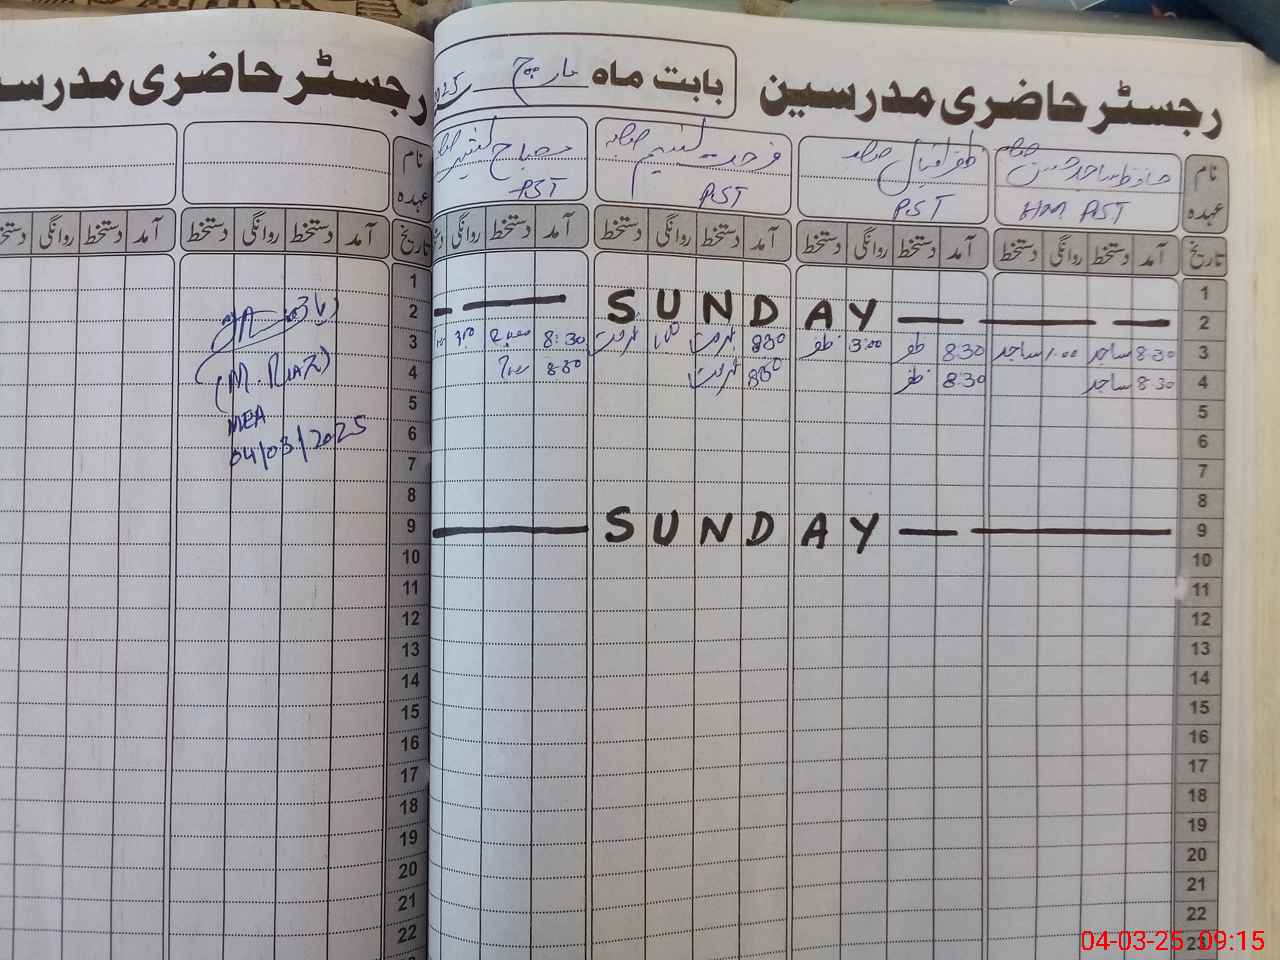 رجسٹر حاضری مدرسین
بابت ماہ مارچ 2025
نام
عہدہ
حافظ ساجد حسین صاحب
HM PST
ظفر اقبال صاحب
PST
فرحت نسیم صاحبہ
PST
مصباح
PST
تاریخ آمد دستخط روانگی دستخط آمد دستخط روانگی دستخط آمد دستخط روانگی دستخط آمد دستخط روانگی
1
2 — SUNDAY —
3 8:30 ساجد 1:00 ساجد 8:30 ظفر 3:00 ظفر 8:30 فرحت فرحت 8:30
4 8:30 ساجد 8:30 ظفر 8:30 فرحت 8:30
5
6
7
8
9 — SUNDAY —
10
11
12
13
14
15
16
17
18
19
20
21
22
23
رجسٹر حاضری مدرس
نام
عہدہ
تاریخ آمد دستخط روانگی دستخط آمد دستخط روانگی
1
2
3
4
5
6
7
8
9
10
11
12
13
14
15
16
17
18
19
20
21
22
(M. RIAZ)
MEA
04/03/2025
04-03-25 09:15